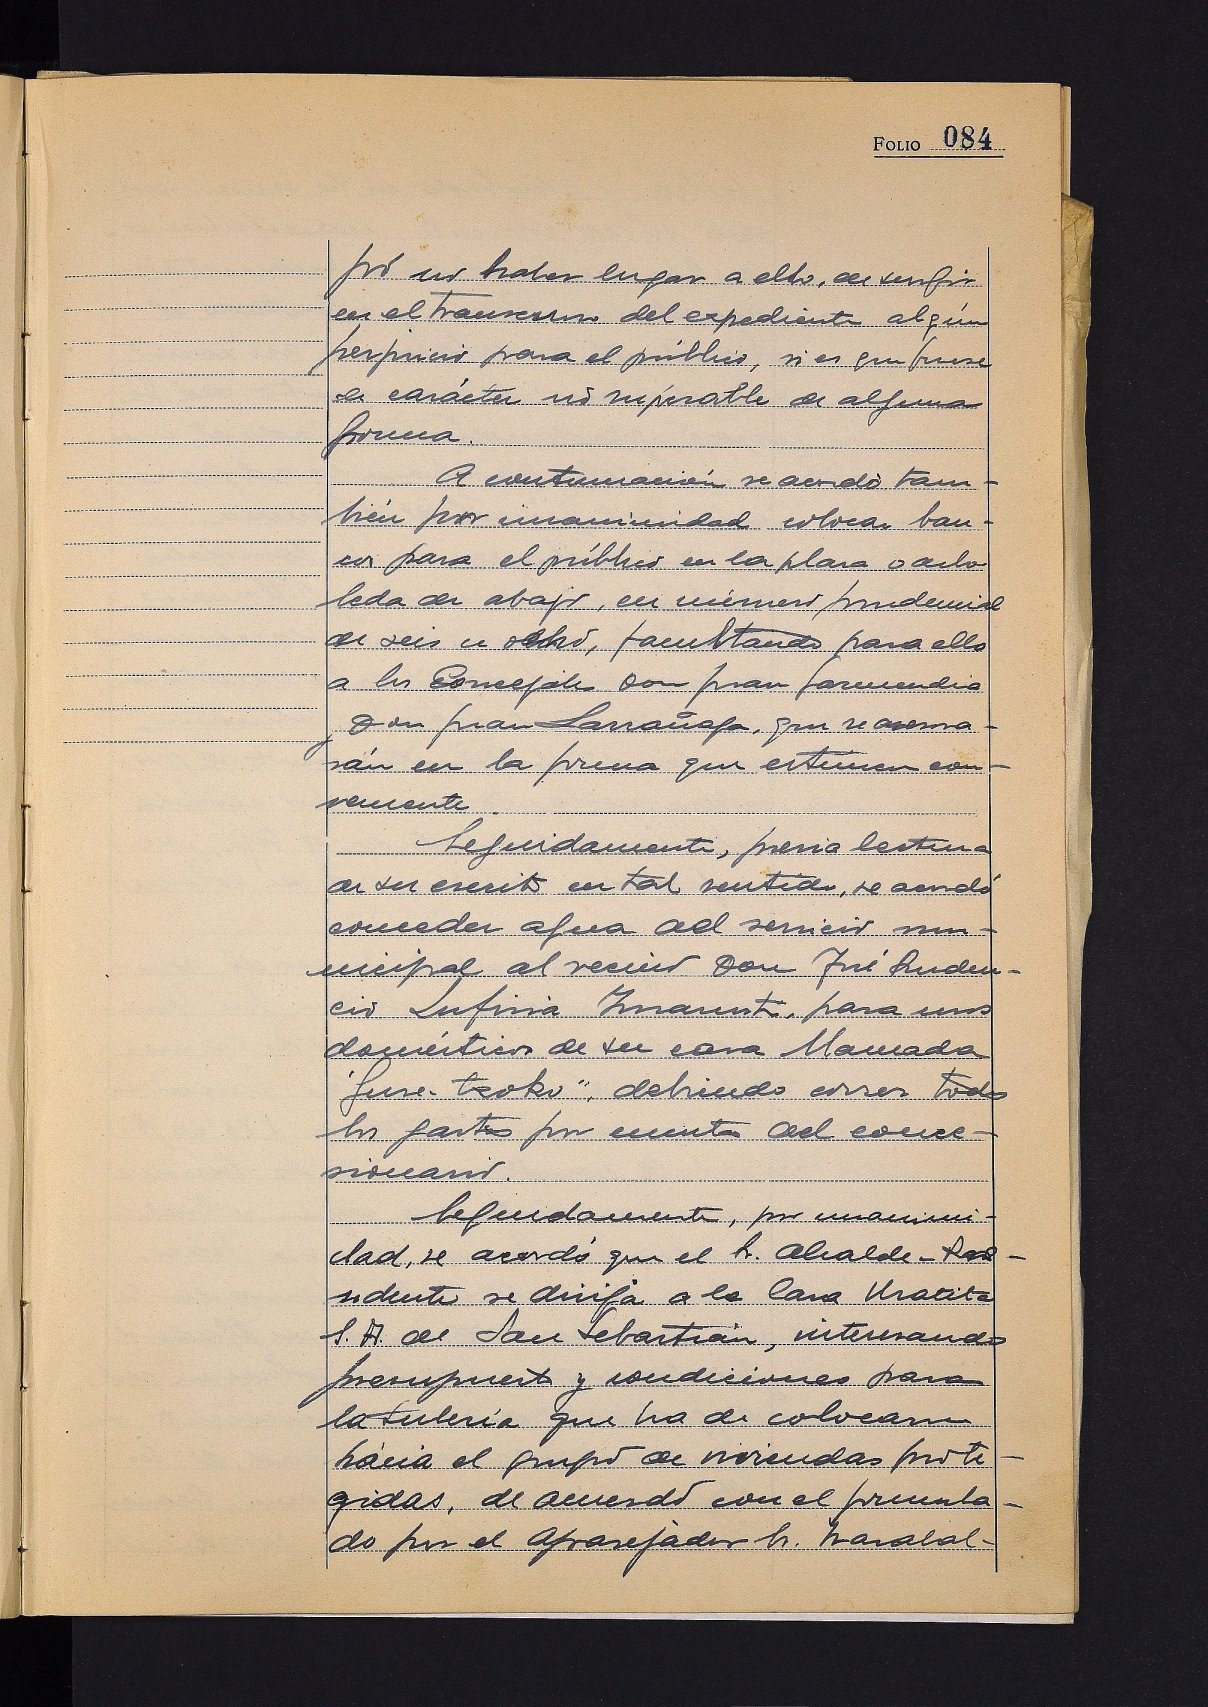 FOLIO 084
pió no haber lugar a ello, de surgir
en el transcurso del expediente algún
perjuicio para el público, si es que fuese
de carácter no reparable de alguna
forma.
A continuación se acordó tam-
bién por unanimidad colocar ban-
cos para el público en la plaza o arbo
leda de abajo, en número prudencial
de seis u ocho, facultando para ello
a los Concejales Don Juan Garmendia
y Don Juan Larrañaga, que se aseso-
rán en la forma que estimen con-
veniente.
Seguidamente, previa lectura
de su escrito en tal sentido, se acordó
conceder agua del servicio mu-
nicipal al vecino Don José Pruden-
cio para usos
domésticos de su casa llamada
"Gure-txoko", debiendo correr todos
los gastos por cuenta del conce-
sionario.
Seguidamente, por unanimi-
dad, se acordó que el Sr. Alcalde-Pre-
sidente se dirija a la Casa Uralita
S.A. de San Sebastián, interesando
presupuesto y condiciones para
la tubería que ha de colocarse
hácia el grupo de viviendas prote-
gidas, de acuerdo con el formula-
do por el Aparejador Sr.